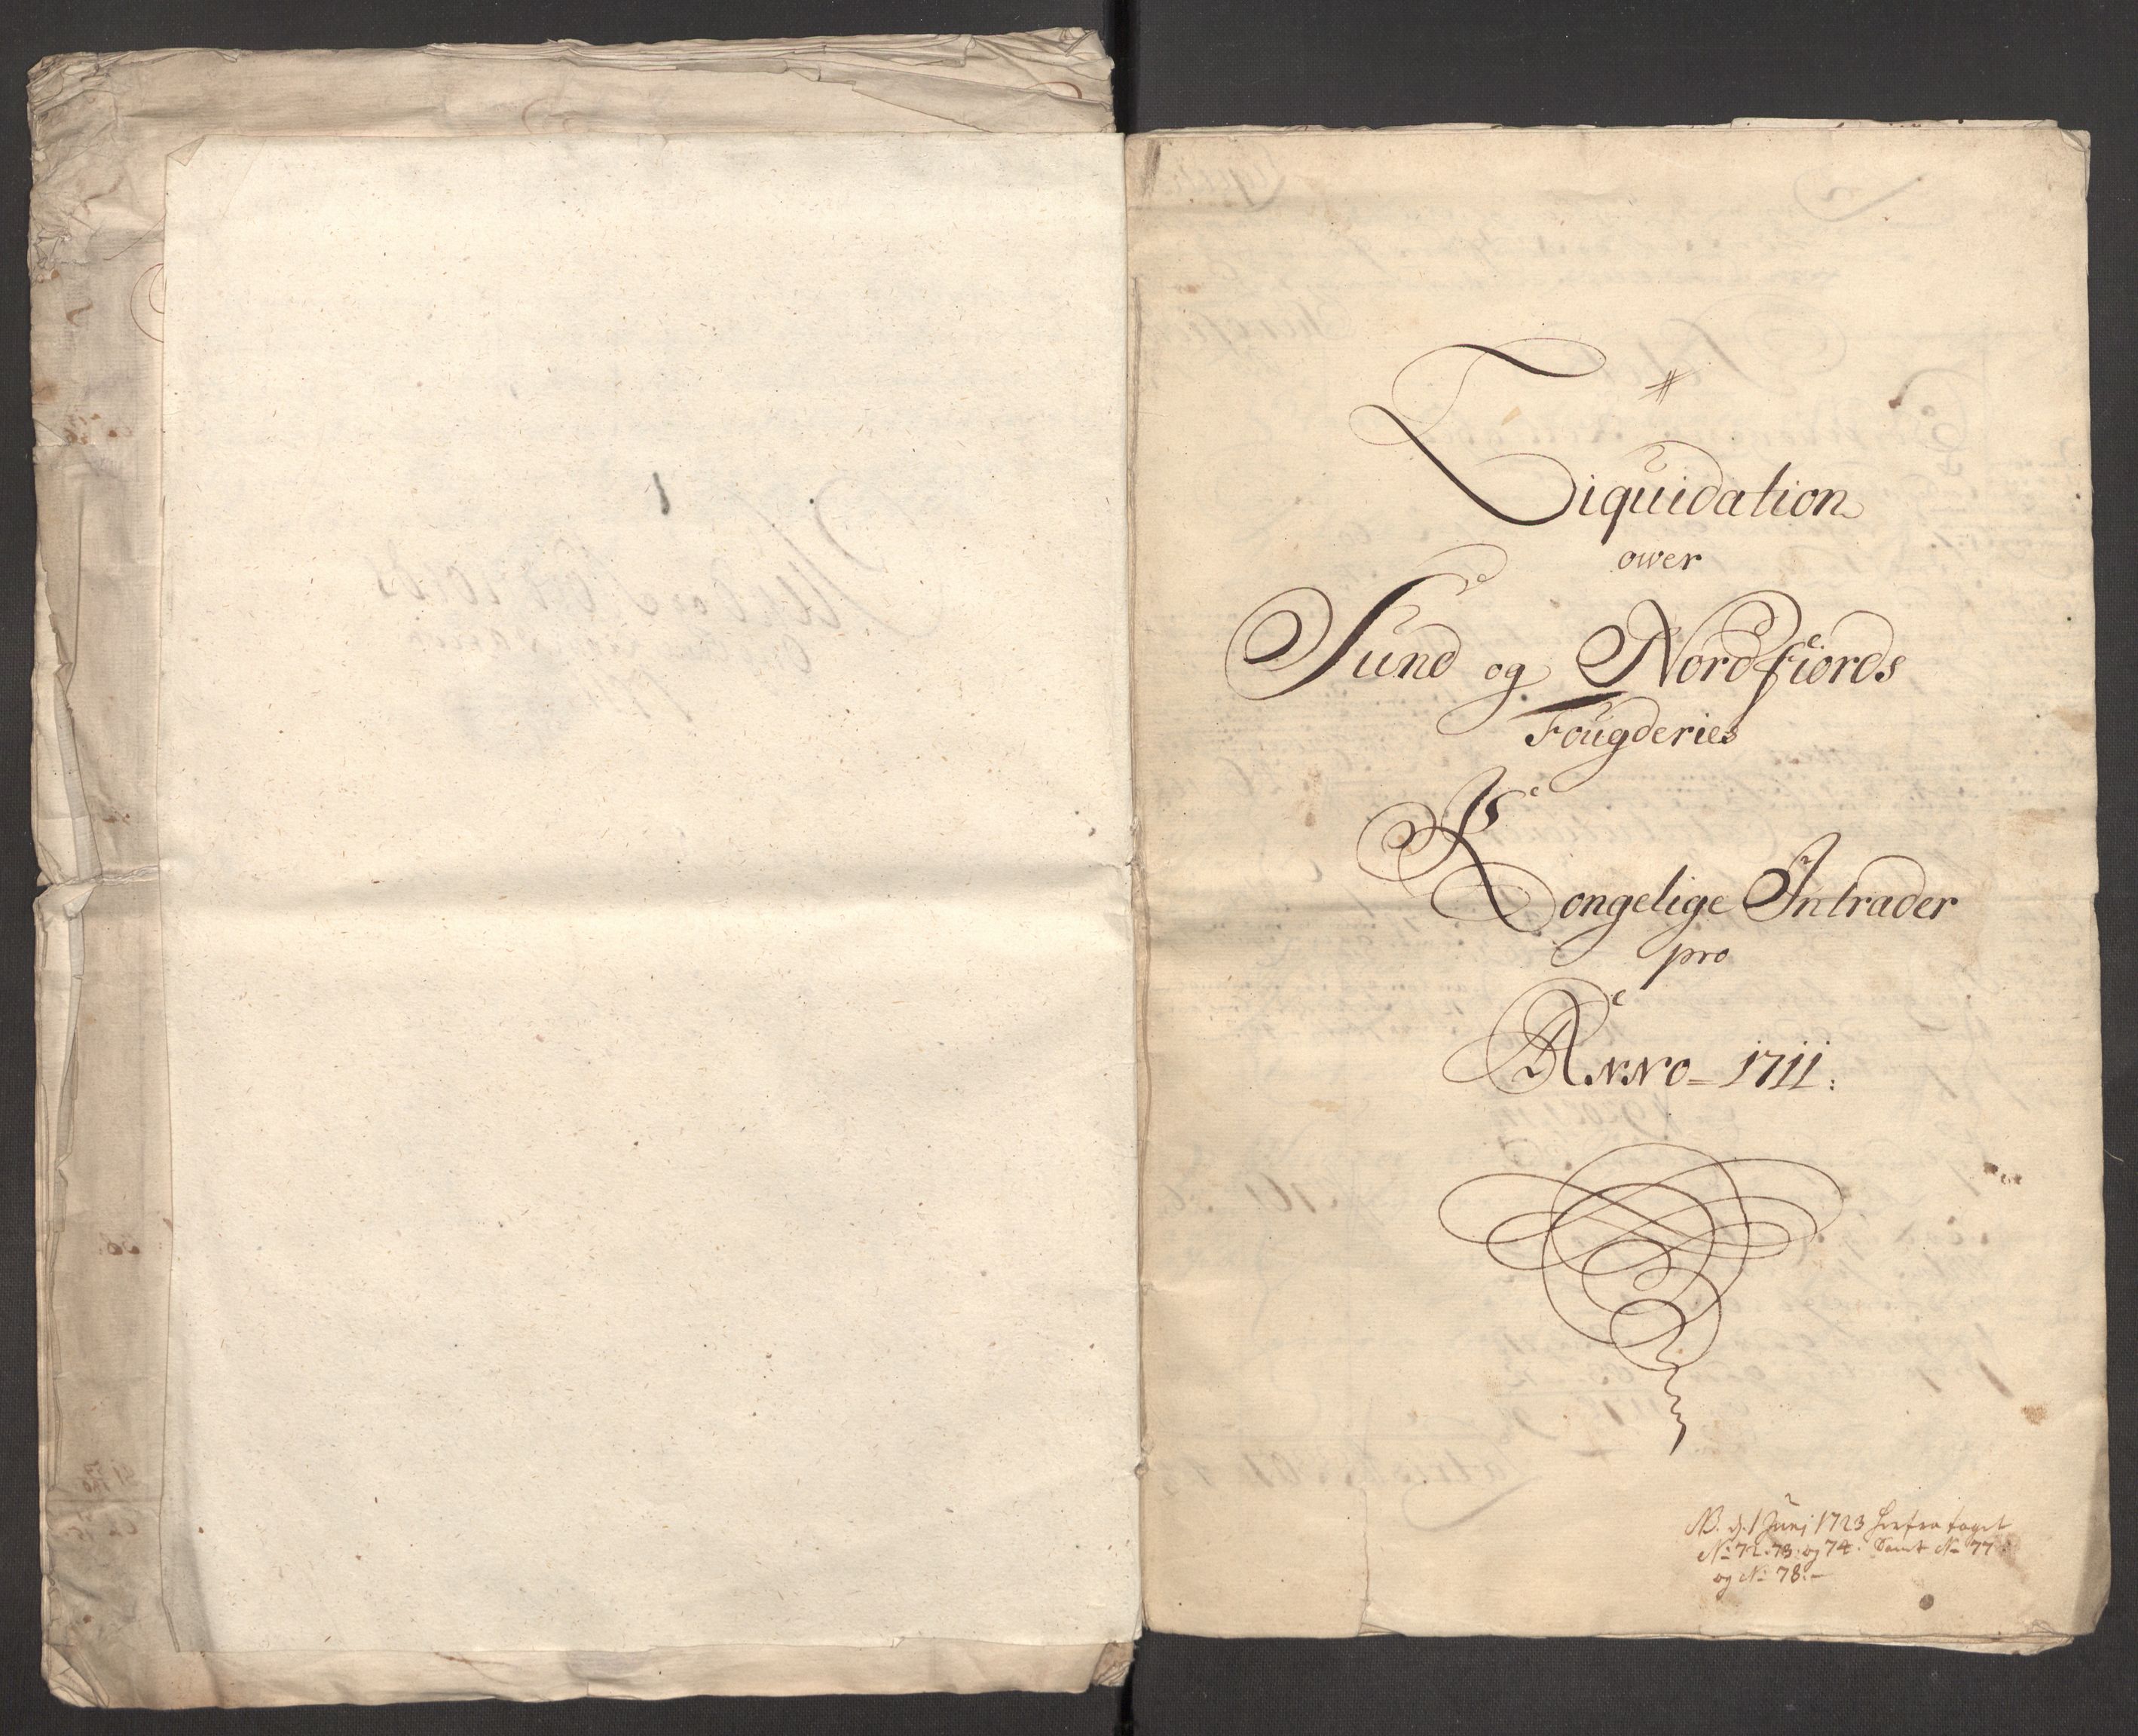 Liquidation
ower
Sund og Nordfiords
Fougderies
Kongelige Intrader
pro
Anno - 1711:
NB. d. 1 Junj 1723 herfra taget
No 72. 73. og 74. Samt No 77
og No 78.-